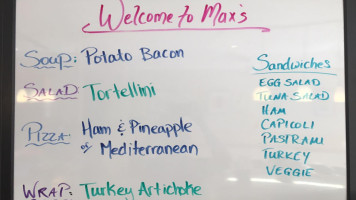 Welcome to Max's
Soup: Potato Bacon
Salad: Tortellini
Pizza: Ham & Pineapple
or Mediterranean
Wrap: Turkey Artichoke
Sandwiches
EGG SALAD
TUNA SALAD
HAM
CAPICOLI
PASTRAMI
TURKEY
VEGGIE